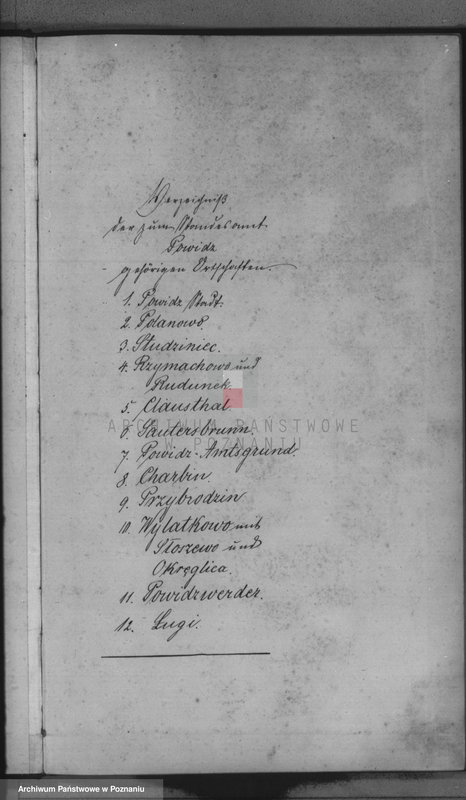 Verzeichniß
der zum Standesamt
Powidz
gehörigen Ortschaften.
1. Powidz Stadt.
2. Polanowo.
3. Studziniec.
4. Rzymachowo und
Rudunek
5. Clausthal.
ARCHIWUM PAŃSTWOWE
W POZNANIU
6. Sautersbrunn.
7. Powidz-Amtsgrund
8. Charbin
9. Przybrodzin
10. Wylatkowo mit
Słoszewo und
Okręglica.
11. Powidzwerder.
12. Lugi.
Archiwum Państwowe w Poznaniu